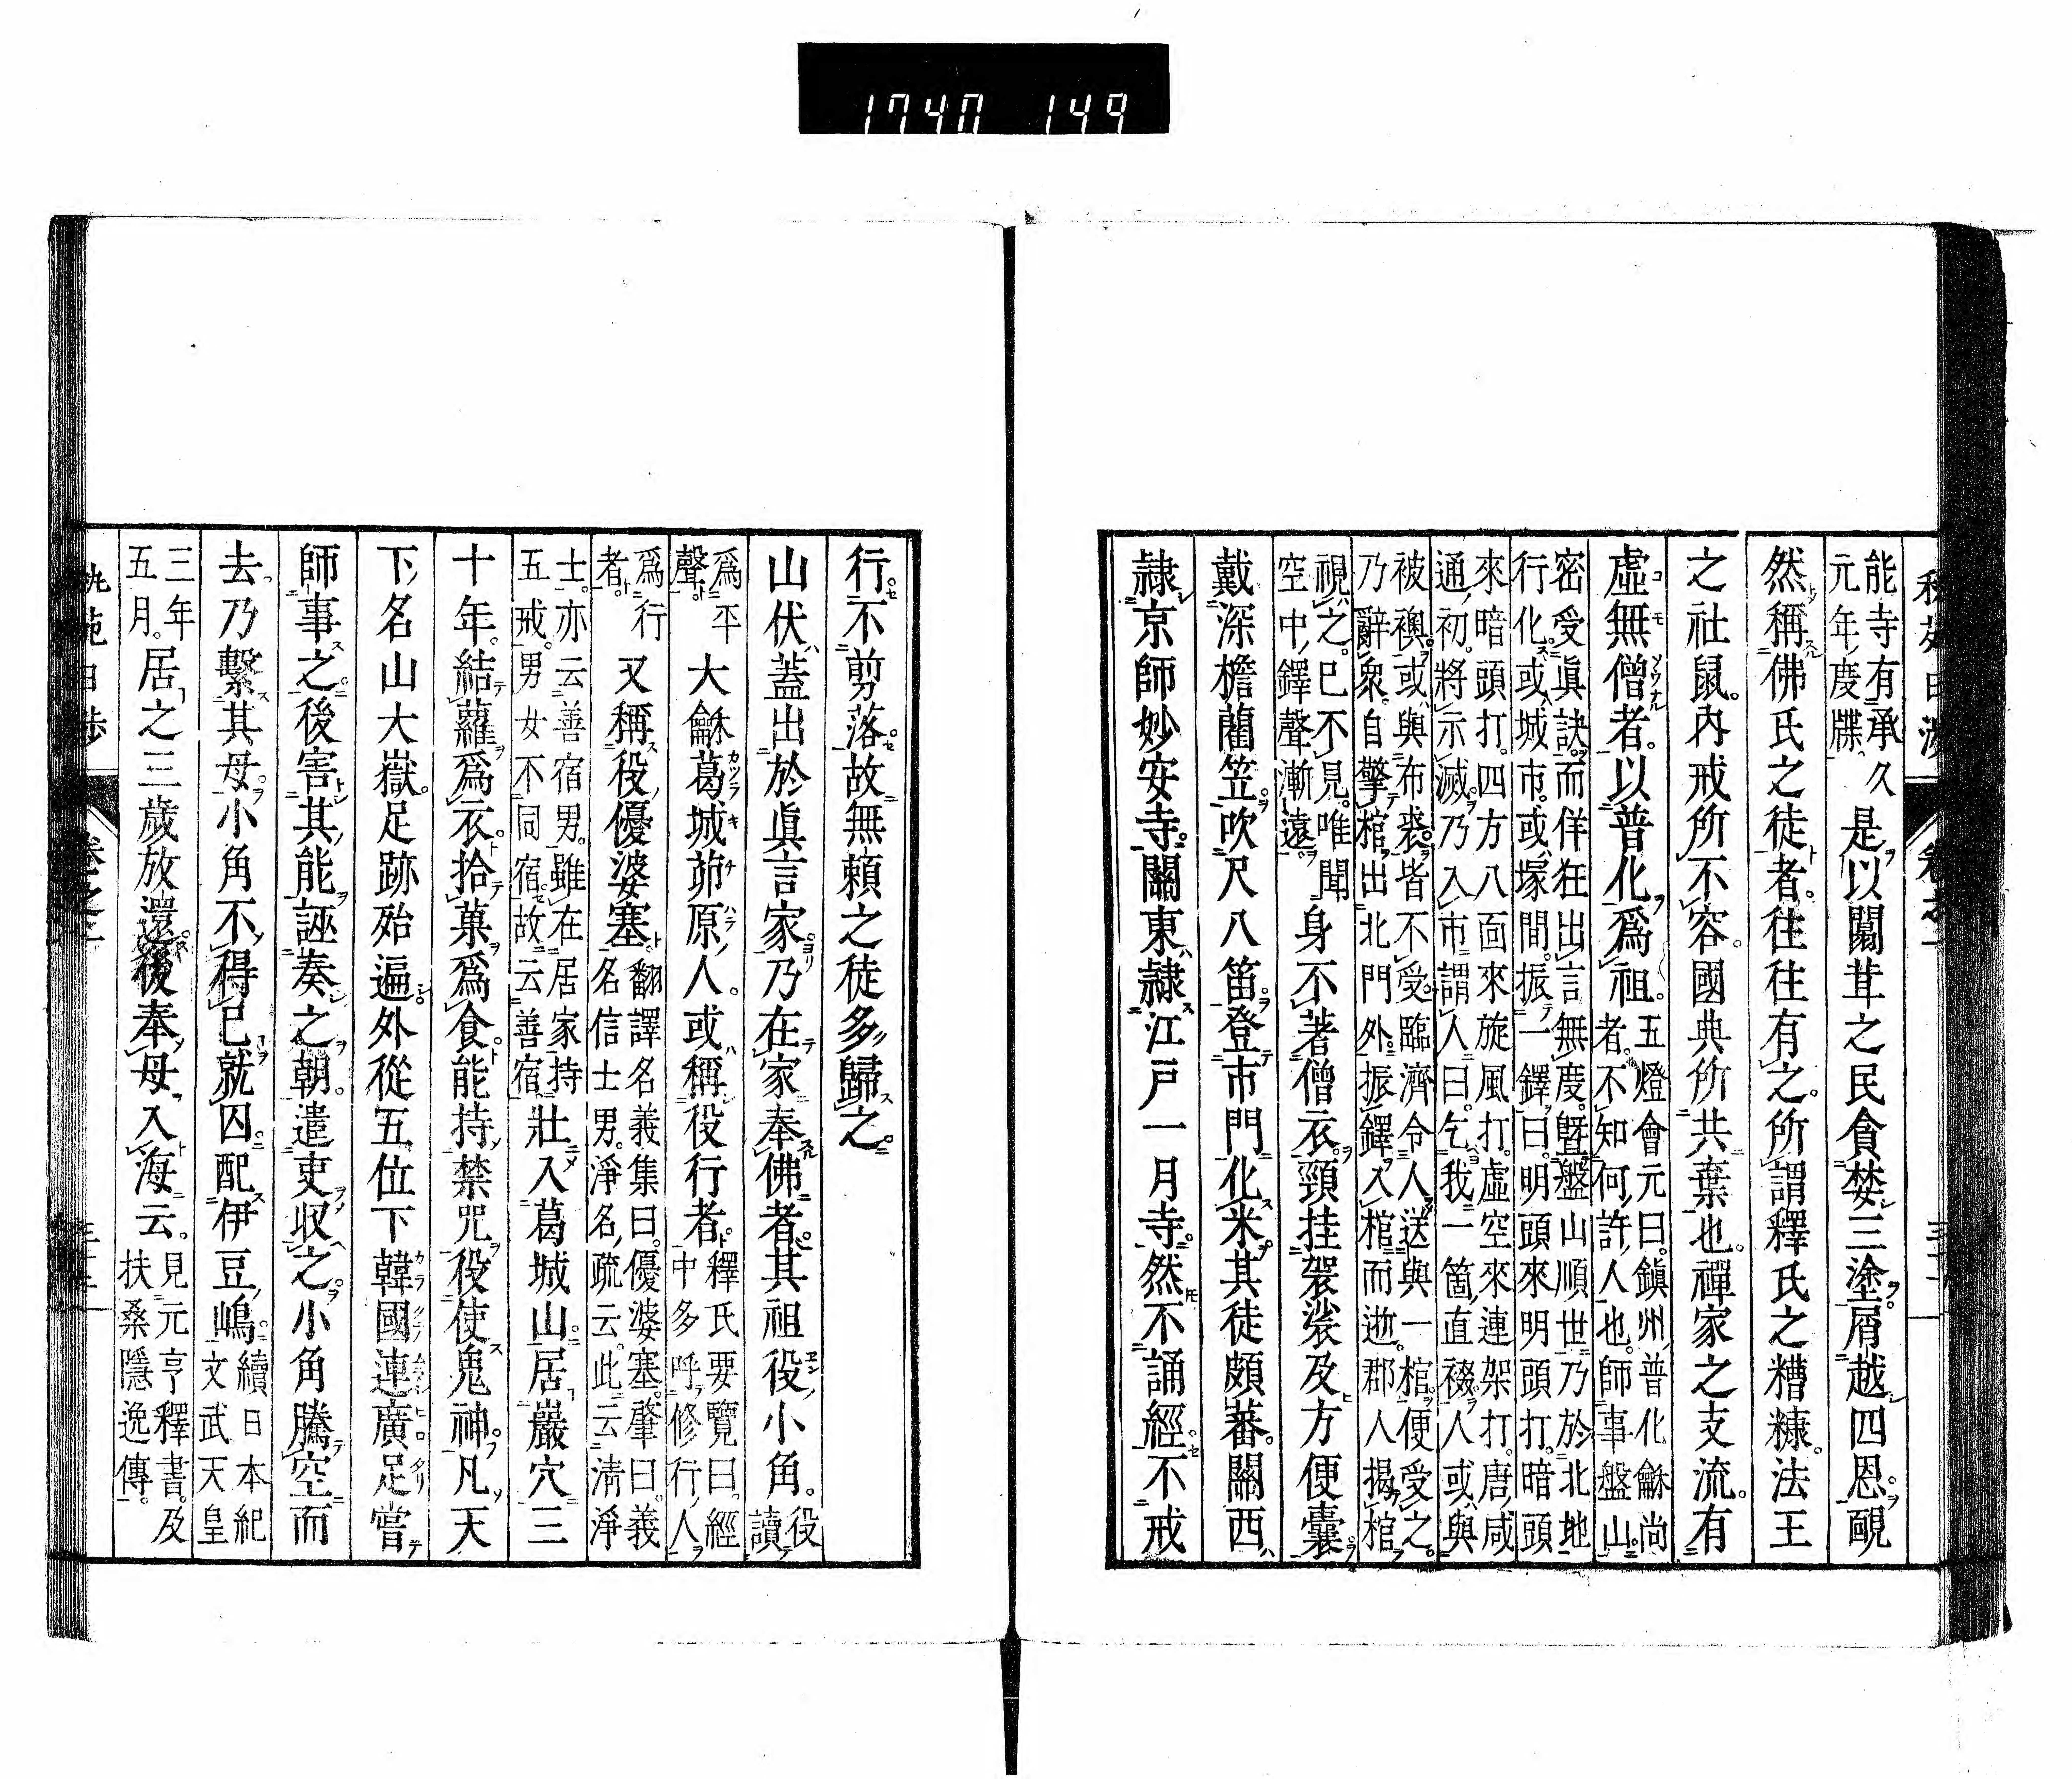 1740 149
能寺有承久
元年度牒
是以闒茸之民貪婪三塗屑越四恩靦
然稱佛氏之徒者往往有之所謂釋氏之糟糠法王
之社鼠內戒所不容國典所共棄也禪家之支流有
虛無僧者以普化爲祖
五燈會元曰鎭州普化龢尚
者不知何許人也師事盤山
密受眞訣而佯狂出言無度曁盤山順世乃於北地
行化或城市或塚間振一鐸曰明頭來明頭打暗頭
來暗頭打四方八面來旋風打虛空來連架打唐咸
通初將示滅乃入市謂人曰乞我一箇直裰人或與
被襖或與布裘皆不受臨濟令人送與一棺便受之
乃辭衆自擎棺出北門外振鐸入棺而逝郡人揭棺
視之已不見唯聞
空中鐸聲漸遠
身不著僧衣頸挂袈裟及方便囊
戴深檐藺笠吹尺八笛登市門化米其徒頗蕃關西
隷京師妙安寺關東隷江戶一月寺然不誦經不戒
行不剪落故無頼之徒多歸之
山伏蓋出於眞言家乃在家奉佛者其祖役小角
役
讀
爲平
聲
大龢葛城茆原人或稱役行者
釋氏要覽曰經
中多呼修行人
爲行
者
又稱役優婆塞
翻譯名義集曰優婆塞肇曰義
名信士男淨名疏云此云淸淨
士亦云善宿男雖在居家持
五戒男女不同宿故云善宿
壯入葛城山居巖穴三
十年結蘿爲衣拾菓爲食能持禁咒役使鬼神凡天
下名山大嶽足跡殆遍外從五位下韓國連廣足嘗
師事之後害其能誣奏之朝遣吏収之小角騰空而
去乃繫其母小角不得已就囚配伊豆嶋
續日本紀
文武天皇
三年
五月
居之三歲放還後奉母入海云
見元亨釋書及
扶桑隱逸傳